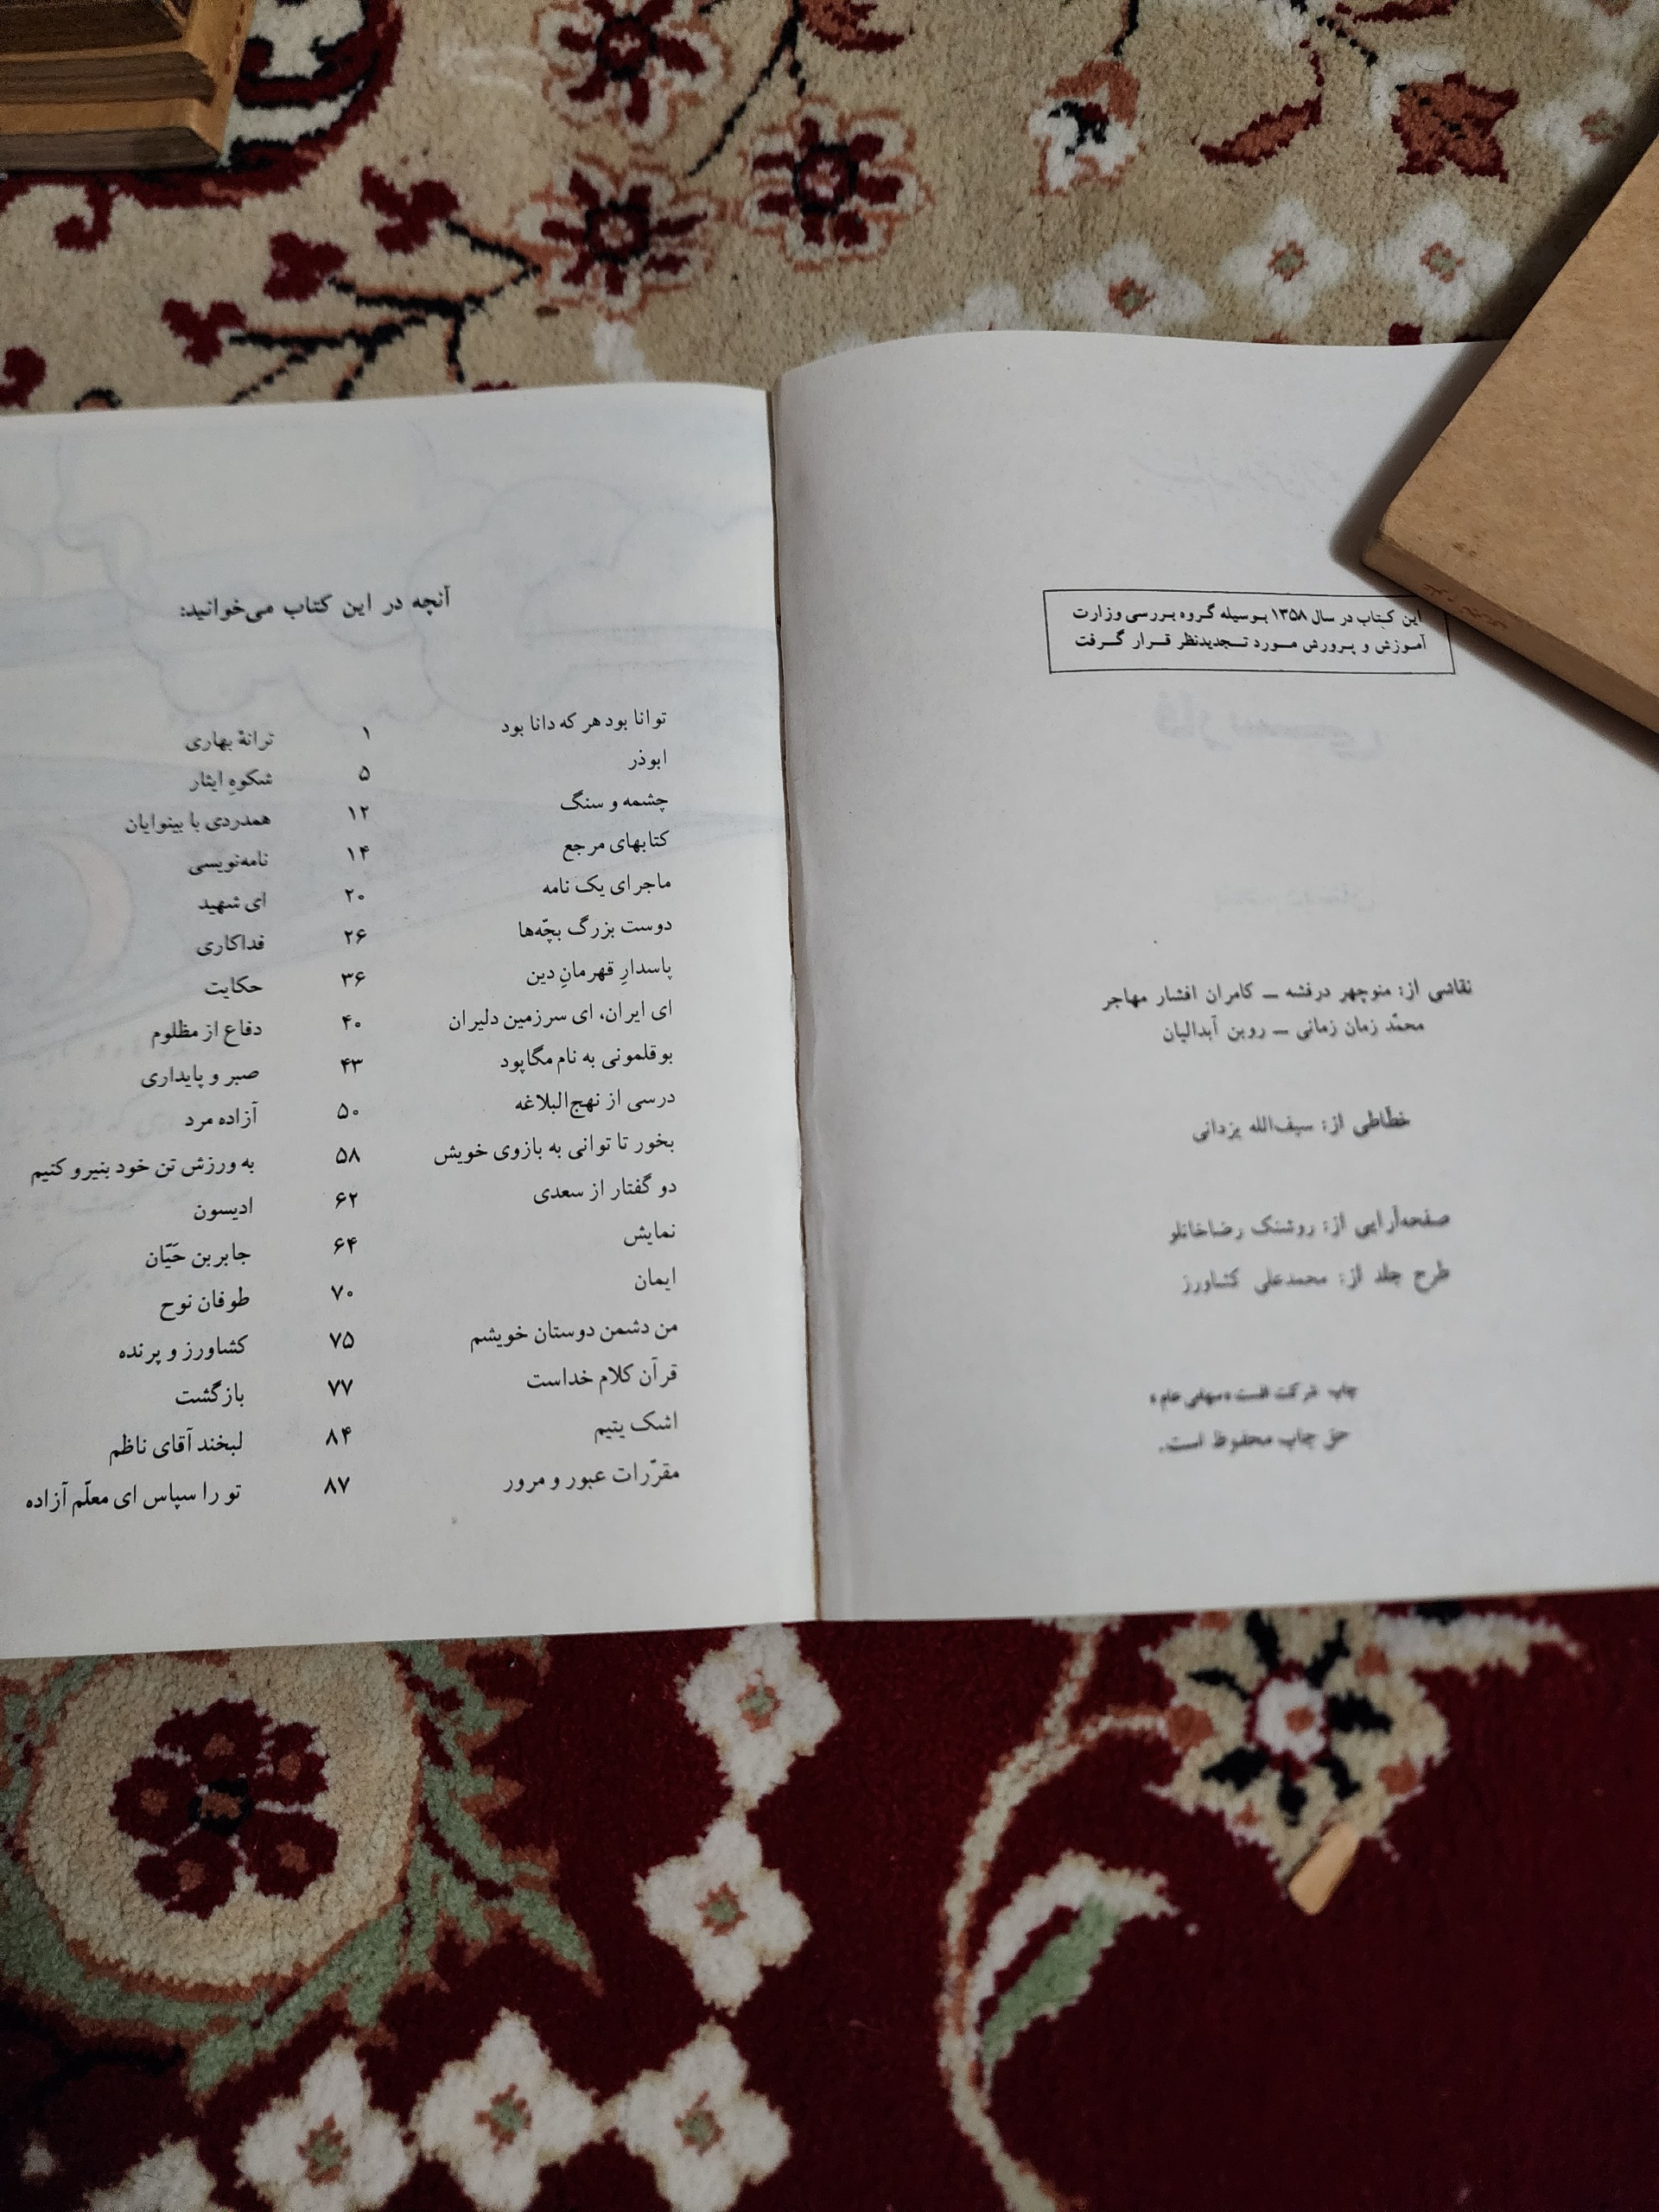 این کتاب در سال ۱۳۵۸ بوسیله گروه بررسی وزارت
آموزش و پرورش مورد تجدیدنظر قرار گرفت
نقاشی از: منوچهر درفشه ـ کامران افشار مهاجر
محمّد زمان زمانی ـ روبن آبدالیان
خطّاطی از: سیف‌الله یزدانی
صفحه‌آرایی از: روشنک رضاخانلو
طرح جلد از: محمدعلی کشاورز
چاپ شرکت افست «سهامی عام»
حق چاپ محفوظ است.
آنچه در این کتاب می‌خوانید:
توانا بود هر که دانا بود ۱ ترانهٔ بهاری
ابوذر ۵ شکوهِ ایثار
چشمه و سنگ ۱۲ همدردی با بینوایان
کتابهای مرجع ۱۴ نامه‌نویسی
ماجرای یک نامه ۲۰ ای شهید
دوست بزرگ بچّه‌ها ۲۶ فداکاری
پاسدارِ قهرمانِ دین ۳۶ حکایت
ای ایران، ای سرزمین دلیران ۴۰ دفاع از مظلوم
بوقلمونی به نام مگاپود ۴۳ صبر و پایداری
درسی از نهج‌البلاغه ۵۰ آزاده مرد
بخور تا توانی به بازوی خویش ۵۸ به ورزش تن خود بنیرو کنیم
دو گفتار از سعدی ۶۲ ادیسون
نمایش ۶۴ جابربن حَیّان
ایمان ۷۰ طوفان نوح
من دشمن دوستان خویشم ۷۵ کشاورز و پرنده
قرآن کلام خداست ۷۷ بازگشت
اشک یتیم ۸۴ لبخند آقای ناظم
مقرّرات عبور و مرور ۸۷ تو را سپاس ای معلّم آزاده